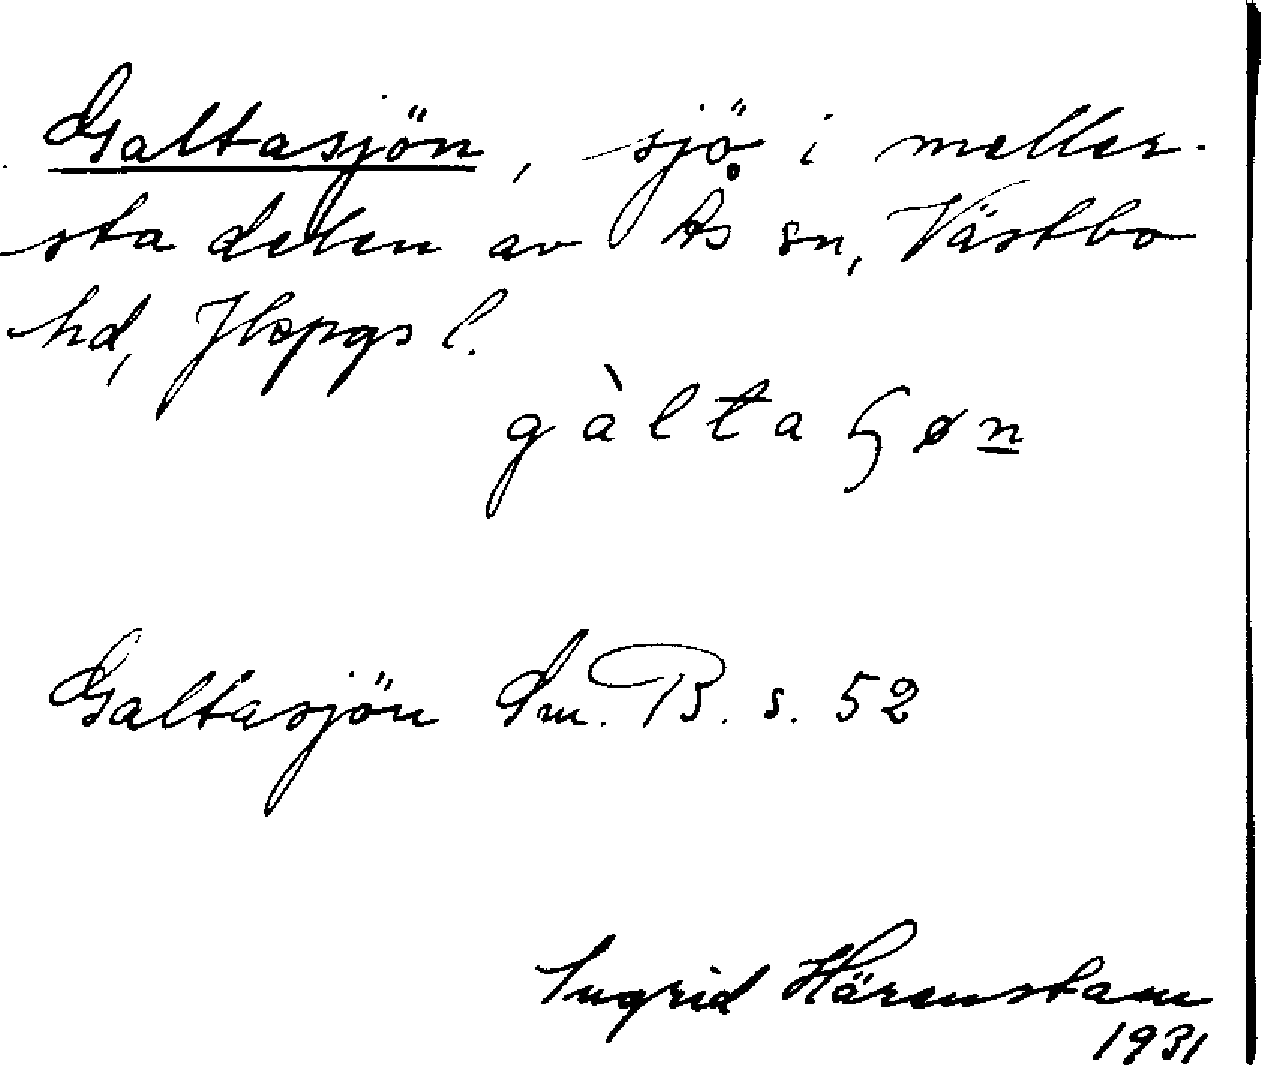 Galtasjön, sjö i meller-
sta delen av Ås sn, Västbo
hd, Jkpgs l.
gàltaɧøn
Galtasjön Sm. B. s. 52
Ingrid Härenstam
1931